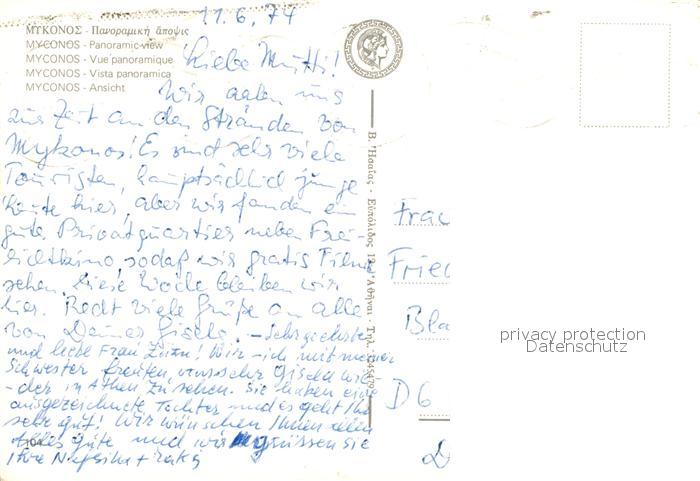 11.6.74
ΜΥΚΟΝΟΣ - Πανοραμική ἄποψις
MYCONOS - Panoramic view
MYCONOS - Vue panoramique
MYCONOS - Vista panoramica
MYCONOS - Ansicht
Liebe Mutti!
Wir aalen uns
zur Zeit an den Stränden von
Mykonos! Es sind sehr viele
Touristen, hauptsächlich junge
Leute hier, aber wir fanden ein
gute Privatquartier neben Frei-
lichtkino sodaß wir gratis Filme
sehen. Diese Woche bleiben wir
hier. Recht viele Grüße an alle
von Deiner Gisela. - Sehr geehrte
und liebe Frau! Wir - ich mit meiner
Schwester freuten uns sehr Gisela wie-
- der in Athen zu sehen. Sie haben eine
ausgezeichnete Tochter und es geht Ihr
sehr gut! Wir wünschen Ihnen alles
Gute und wir grüssen Sie
Ihre
104
Β. Ἠσαΐας - Εὐπόλιδος 12 Ἀθῆναι - Τηλ.
Frau
Fried
Bla
D 6
privacy protection
Datenschutz